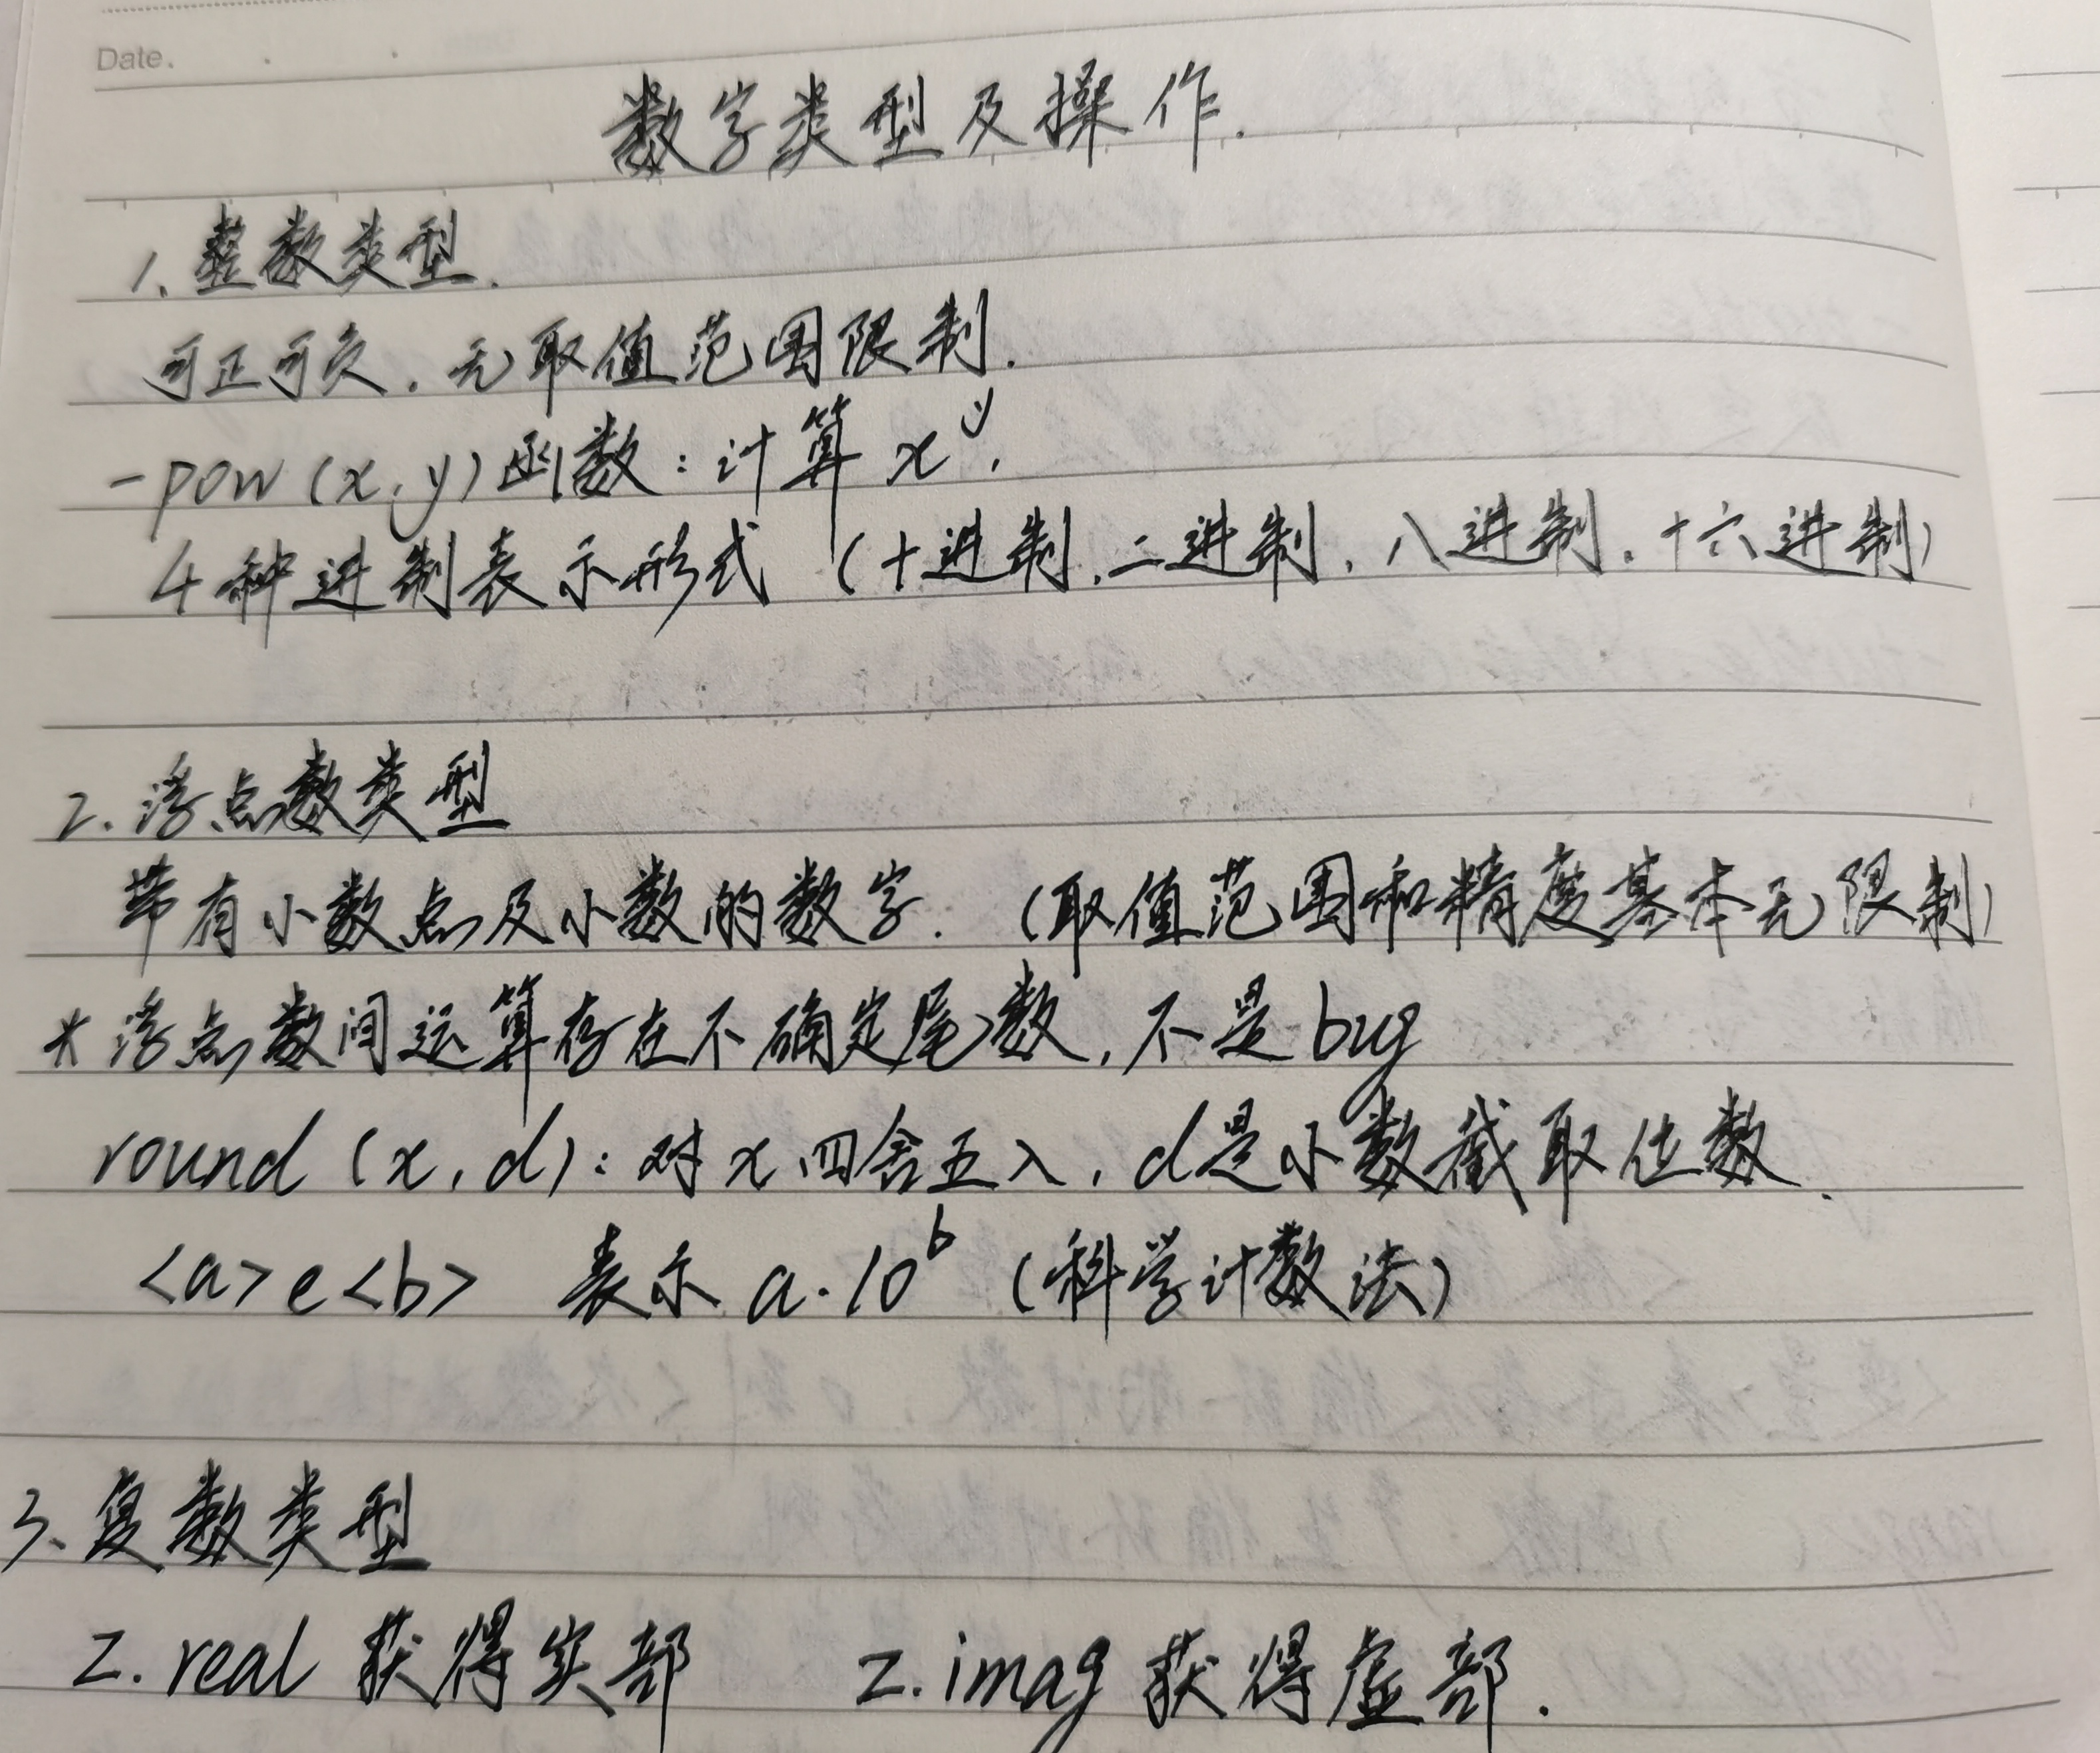 Date.
数字类型及操作.
1. 整数类型.
可正可负. 无取值范围限制.
-pow(x,y)函数:计算 x^y.
4种进制表示形式 (十进制.二进制.八进制.十六进制)
2. 浮点数类型
带有小数点及小数的数字. (取值范围和精度基本无限制)
* 浮点数间运算存在不确定尾数,不是bug
round (x, d): 对x四舍五入, d是小数截取位数.
<a>e<b> 表示 a·10^b (科学计数法)
3、复数类型
z.real 获得实部 z.imag 获得虚部.